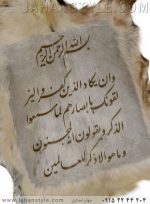 JAHAN STYLE
بسم الله الرحمن الرحيم
وان يكاد الذين كفروا ليز
لقونك بابصارهم لما سمعوا
الذكر ويقولون انه لمجنون
وما هو الا ذكر للعالمين
www.jahanstyle.com جهان استایل ۰۹۱۵ ۲۲ ۴۴ ۲۰۳